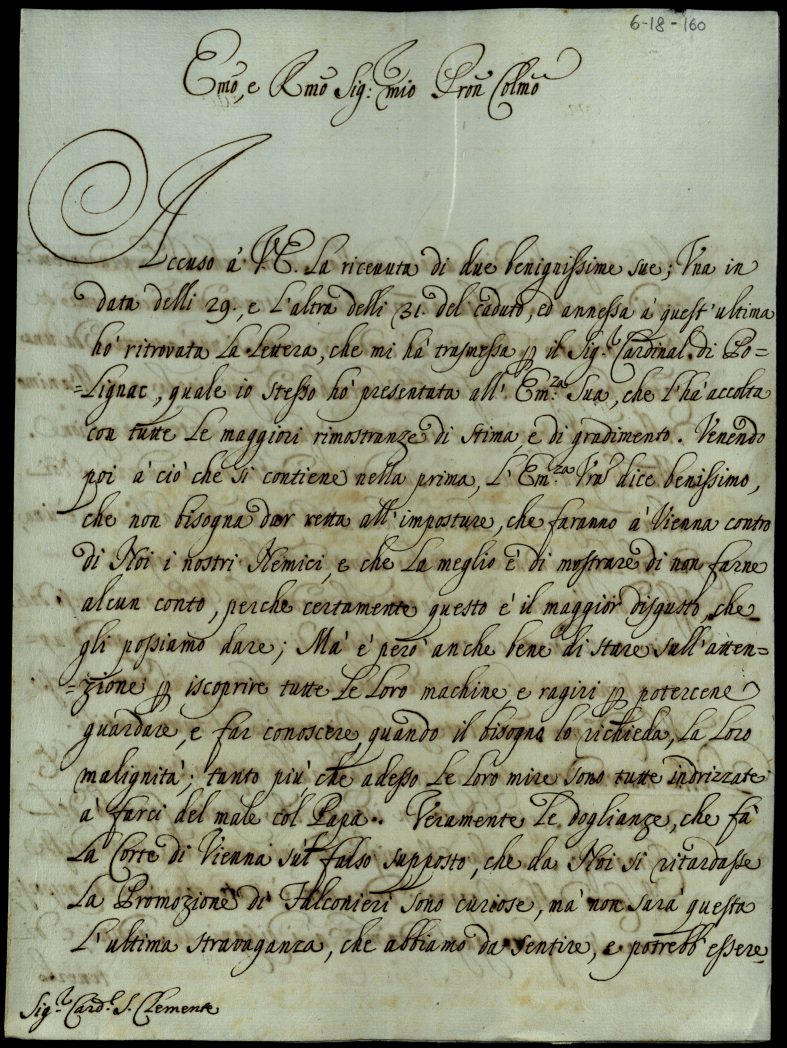 6-18-160
Emõ, e Rmõ Sig:r mio Pron Colmõ
Accuso à V.E. La riceuuta di due benignissime sue; Vna in
data delli 29., e L'altra delli 31. del caduto, ed annessa à quest'ultima
hò ritrovata La Lettera, che mi hà trasmessa p il Sig:r Cardinal di Po=
=Lignac, quale io stesso hò presentata all' Em:za Sua, che l'hà accolta
con tutte Le maggiori rimostranze di stima, e di gradimento. Venendo
poi à ciò che si contiene nella prima, L'Em:za Vra dice benissimo,
che non bisogna dar retta all'imposture, che faranno à Vienna contro
di Noi i nostri Nemici, e che La meglio è di mostrare di non farne
alcun conto, perche certamente questo è il maggior disgusto, che
gli possiamo dare; Mà è però anche bene di stare sull'atten=
=zione p iscoprire tutte Le Loro machine e ragiri p potercene
guardare, e far conoscere, quando il bisogno lo richieda, La Loro
malignità; tanto più che adesso Le Loro mire sono tutte indrizzate
à farci del male col Papa. Veramente Le doglianze, che fà
La Corte di Vienna sul falso supposto, che da Noi si ritardasse
La Promozione di Falconieri sono curiose, mà non sarà questa
L'ultima stravaganza, che abbiamo da sentire, e potrebb'essere
Sig:r Card:e S. Clemente